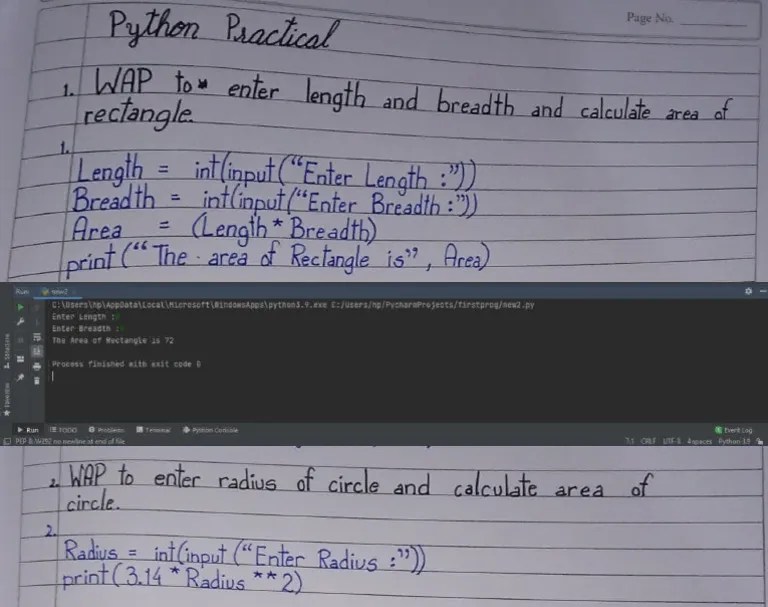 Page No.
Python Practical
1. WAP to enter length and breadth and calculate area of
rectangle.
1.
Length = int(input("Enter Length :"))
Breadth = int(input("Enter Breadth :"))
Area = (Length * Breadth)
print("The area of Rectangle is", Area)
Run: new2
C:\Users\hp\AppData\Local\Microsoft\WindowsApps\python3.9.exe C:/Users/hp/PycharmProjects/firstprog/new2.py
Enter Length :
Enter Breadth :
The Area of Rectangle is 72
Process finished with exit code 0
Structure
Favorites
Run TODO Problems Terminal Python Console Event Log
PEP 8: W292 no newline at end of file 7:1 CRLF UTF-8 4 spaces Python 3.9
2. WAP to enter radius of circle and calculate area of
circle.
2.
Radius = int(input("Enter Radius :"))
print(3.14 * Radius ** 2)